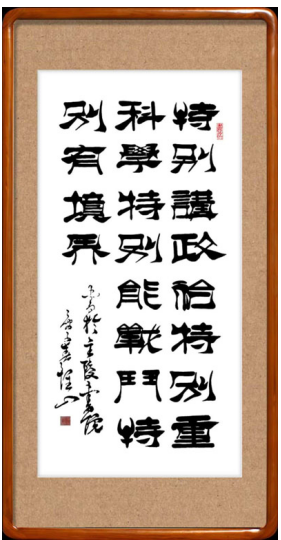 特別講政治特別重
科學特別能戰鬥特
別有境界